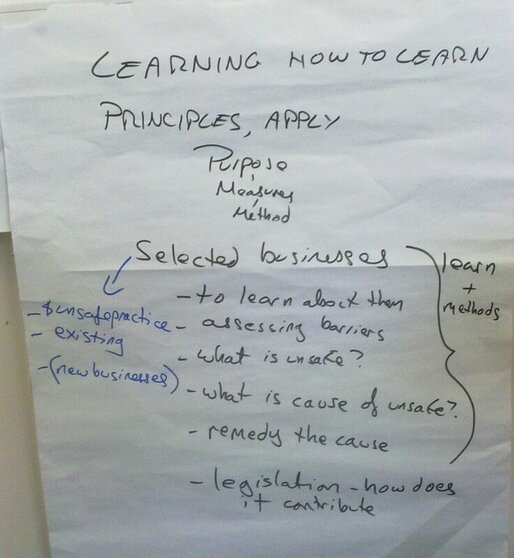 LEARNING HOW TO LEARN
PRINCIPLES, APPLY
Purpose
Measures
Method
Selected businesses
- to learn about them
- assessing barriers
- what is unsafe?
- what is cause of unsafe?
- remedy the cause
- legislation - how does
it contribute
learn
+
methods
- unsafe practice
- existing
- (new businesses)